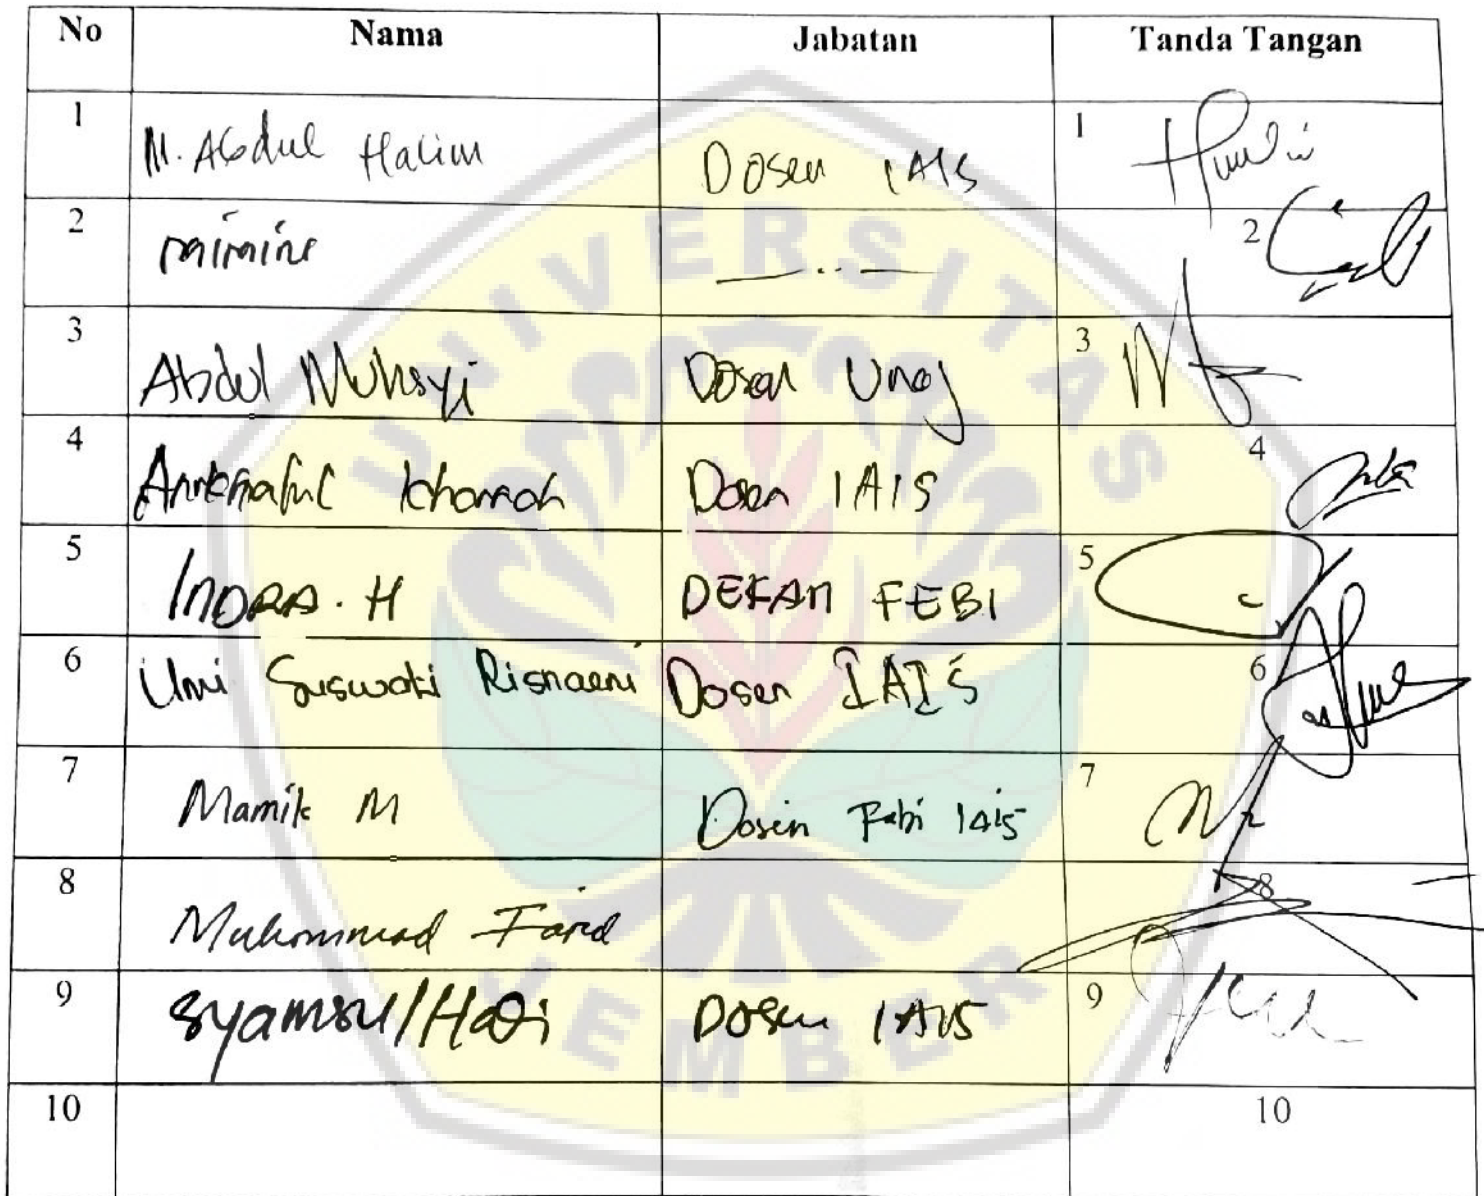 No Nama Jabatan Tanda Tangan
1 M. Abdul Halim Dosen IAIS 1
2 mimin 2
3 Abdul Muhsyi Dosen Unej 3
4 Khoiriah Dosen IAIS 4
5 INDRA. H DEKAN FEBI 5
6 Umi Suswati Risnaeni Dosen IAIS 6
7 Mamik M Dosen Febi IAIS 7
8 Muhammad Farid 8
9 Syamsul/Hadi Dosen IAIS 9
10 10
UNIVERSITAS
JEMBER